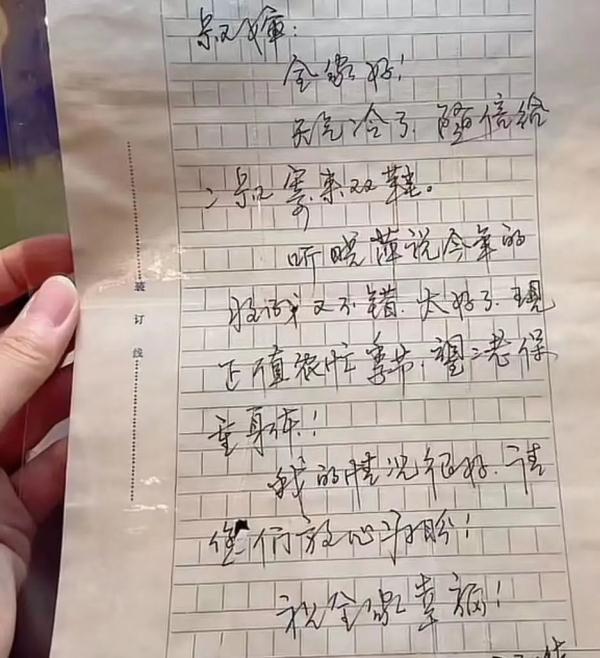 叔婶:
全家好!
天气冷了.随信给
二叔寄来双鞋。
听晓萍说今年的
收成又不错.太好了.现
正值农忙季节,望二老保
重身体!
我的情况很好.请
您们放心勿盼!
祝全家幸福!
装
订
线